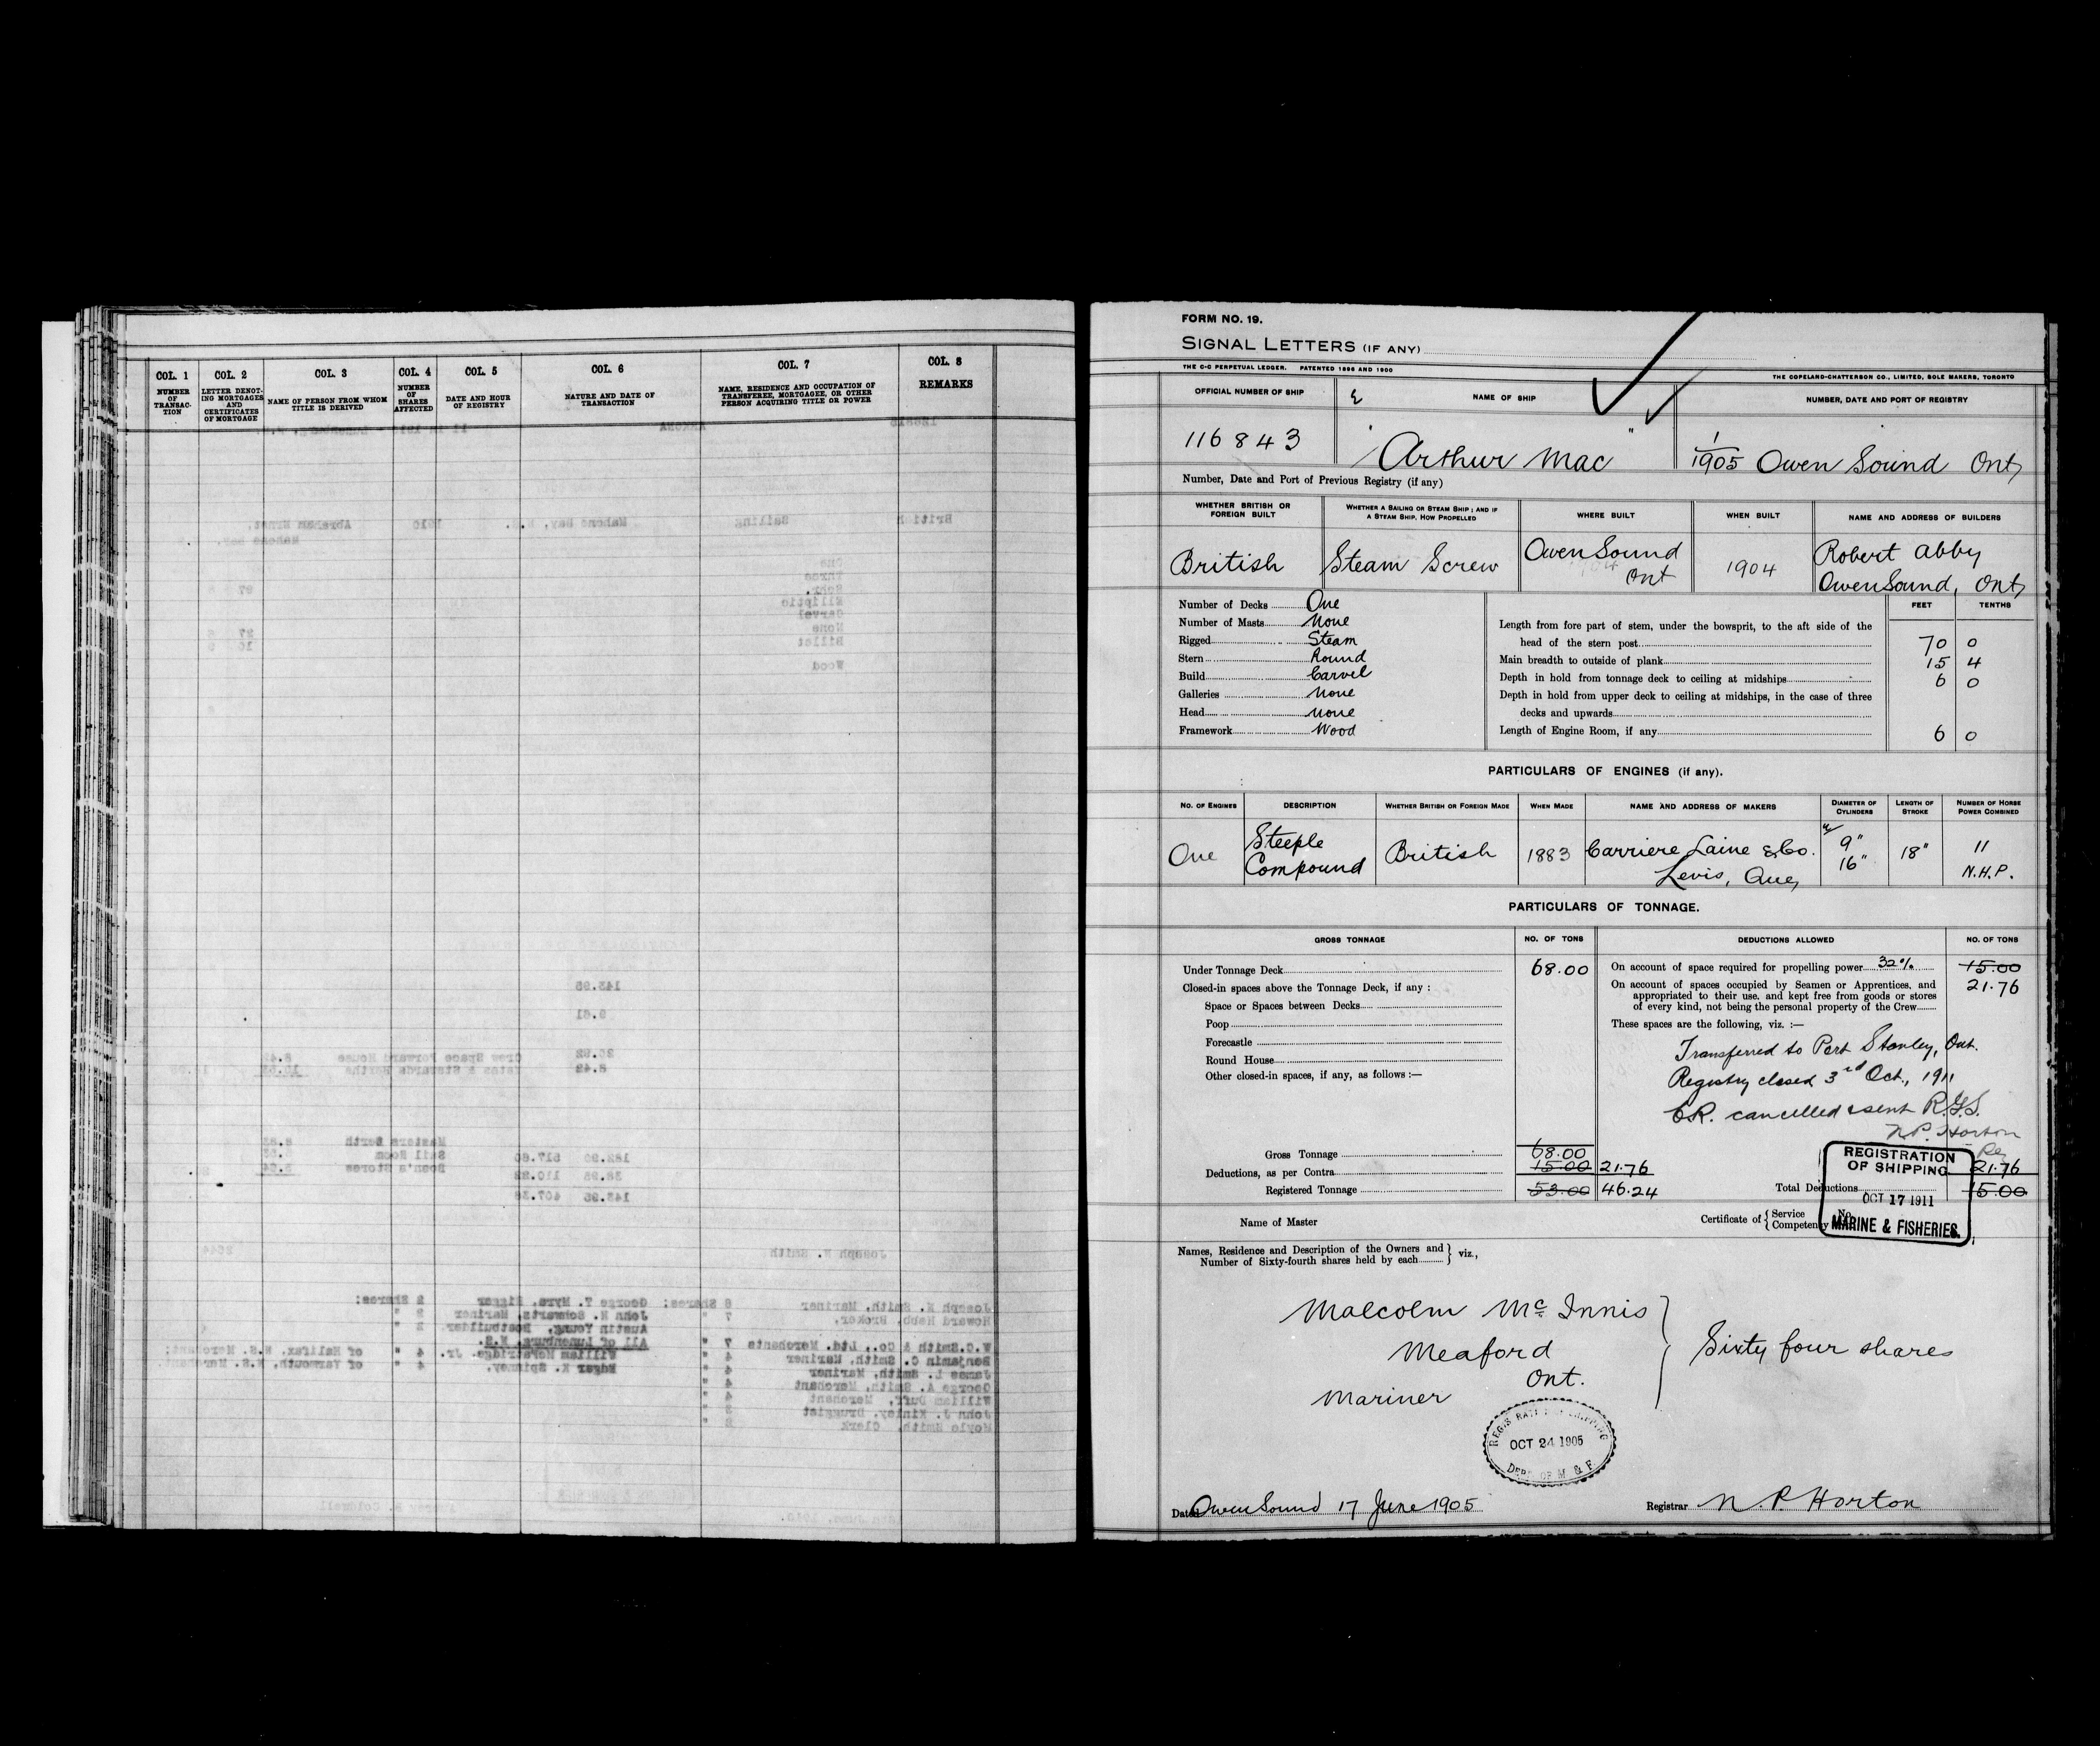 COL. 1
NUMBER
OF
TRANSAC-
TION
COL. 2
LETTER DENOT-
ING MORTGAGES
AND
CERTIFICATES
OF MORTGAGE
COL. 3
NAME OF PERSON FROM WHOM
TITLE IS DERIVED
COL. 4
NUMBER
OF
SHARES
AFFECTED
COL. 5
DATE AND HOUR
OF REGISTRY
COL. 6
NATURE AND DATE OF
TRANSACTION
COL. 7
NAME, RESIDENCE AND OCCUPATION OF
TRANSFEREE, MORTGAGEE, OR OTHER
PERSON ACQUIRING TITLE OR POWER
COL. 8
REMARKS
FORM NO. 19.
SIGNAL LETTERS (IF ANY)
THE C-C PERPETUAL LEDGER. PATENTED 1896 AND 1900
THE COPELAND-CHATTERSON CO., LIMITED, SOLE MAKERS, TORONTO
OFFICIAL NUMBER OF SHIP
NAME OF SHIP
NUMBER, DATE AND PORT OF REGISTRY
116843
"Arthur Mac"
1/1905 Owen Sound Ont
Number, Date and Port of Previous Registry (if any)
WHETHER BRITISH OR
FOREIGN BUILT
WHETHER A SAILING OR STEAM SHIP; AND IF
A STEAM SHIP, HOW PROPELLED
WHERE BUILT
WHEN BUILT
NAME AND ADDRESS OF BUILDERS
British
Steam Screw
Owen Sound
Ont
1904
Robert Abby
Owen Sound, Ont
Number of Decks One
Number of Masts None
Rigged Steam
Stern Round
Build Carvel
Galleries None
Head None
Framework Wood
FEET TENTHS
Length from fore part of stem, under the bowsprit, to the aft side of the
head of the stern post 70 0
Main breadth to outside of plank 15 4
Depth in hold from tonnage deck to ceiling at midships 6 0
Depth in hold from upper deck to ceiling at midships, in the case of three
decks and upwards
Length of Engine Room, if any 6 0
PARTICULARS OF ENGINES (if any).
NO. OF ENGINES
DESCRIPTION
WHETHER BRITISH OR FOREIGN MADE
WHEN MADE
NAME AND ADDRESS OF MAKERS
DIAMETER OF
CYLINDERS
LENGTH OF
STROKE
NUMBER OF HORSE
POWER COMBINED
One
Steeple
Compound
British
1883
Carriere Laine & Co.
Levis, Que
9"
16"
18"
11
N.H.P.
PARTICULARS OF TONNAGE.
GROSS TONNAGE
NO. OF TONS
DEDUCTIONS ALLOWED
NO. OF TONS
Under Tonnage Deck 68.00
Closed-in spaces above the Tonnage Deck, if any :
Space or Spaces between Decks
Poop
Forecastle
Round House
Other closed-in spaces, if any, as follows :—
Gross Tonnage 68.00
Deductions, as per Contra 15.00 21.76
Registered Tonnage 53.00 46.24
On account of space required for propelling power 32% 15.00
21.76
On account of spaces occupied by Seamen or Apprentices, and
appropriated to their use, and kept free from goods or stores
of every kind, not being the personal property of the Crew
These spaces are the following, viz. :—
Transferred to Port Stanley, Ont.
Registry closed 3rd Oct., 1911
C.R. cancelled & sent R.G.S.
N.P. Horton
21.76
Total Deductions 15.00
REGISTRATION
OF SHIPPING
OCT 17 1911
No.
MARINE & FISHERIES.
Name of Master
Certificate of { Service
Competency
Names, Residence and Description of the Owners and
Number of Sixty-fourth shares held by each } viz.,
Malcolm McInnis
Meaford
Ont.
Mariner
Sixty four shares
REGISTRATION OF SHIPPING
OCT 24 1905
DEPT. OF M. & F.
Dated Owen Sound 17 June 1905
Registrar N. P. Horton